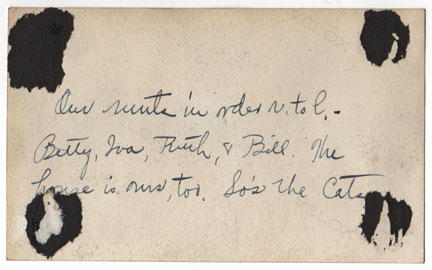 Our runts in order r. to l. -
Betty, Iva, Ruth, & Bill. The
house is ours, too. So's the Cats